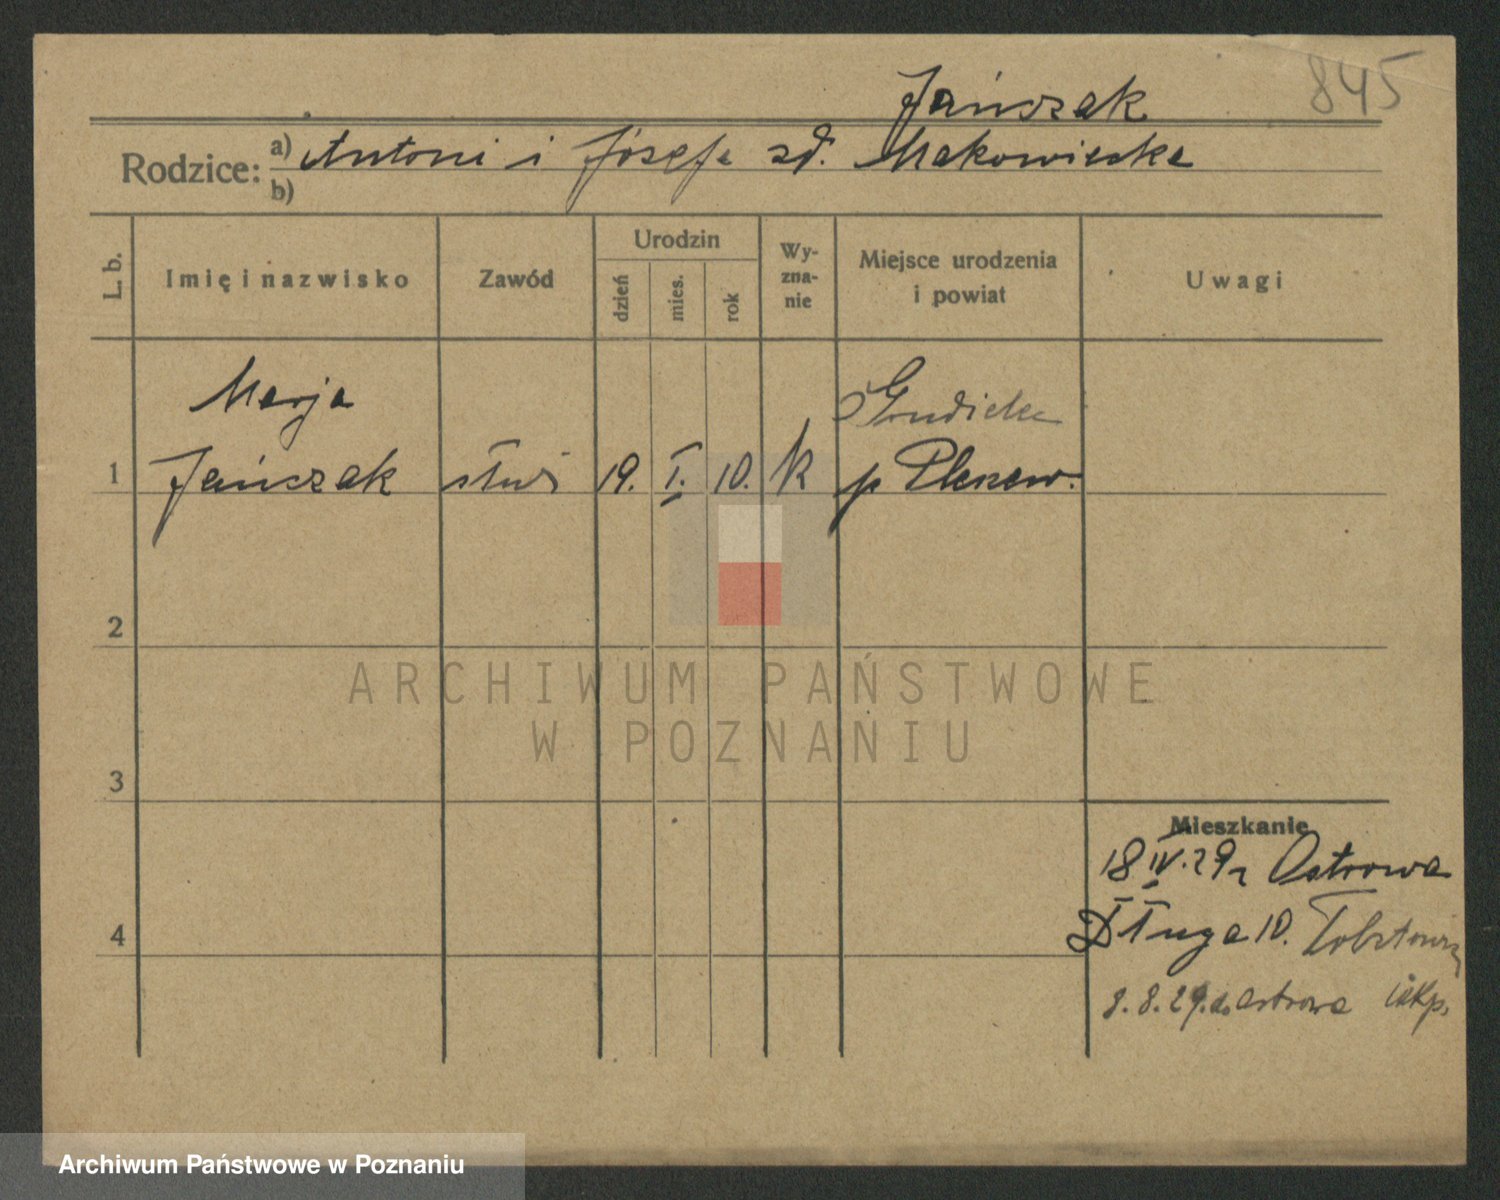 845
Jańczak
Rodzice: a) Antoni i Józefa zd. Makowiecka
b)
L. b. Imię i nazwisko Zawód Urodzin dzień mies. rok Wy-zna-nie Miejsce urodzenia i powiat Uwagi
Marja
1 Jańczak służ 19. I. 10. k p Pleszew.
2
3
4
Mieszkanie
18 IV. 29 r Ostrowa
Długa 10.
8. 8. 29. do Ostrowa
ARCHIWUM PAŃSTWOWE
W POZNANIU
Archiwum Państwowe w Poznaniu